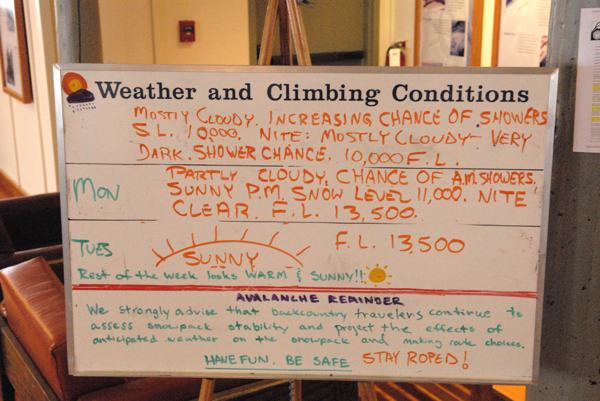 Weather and Climbing Conditions
MOSTLY CLOUDY. INCREASING CHANCE OF SHOWERS
S L. 10000. NITE: MOSTLY CLOUDY - VERY
DARK. SHOWER CHANCE. 10,000 F.L.
MON
PARTLY CLOUDY. CHANCE OF A.M. SHOWERS.
SUNNY P.M. SNOW LEVEL 11,000. NITE
CLEAR. F.L. 13,500.
TUES
SUNNY
F.L. 13,500
Rest of the week looks WARM & SUNNY!!
AVALANCHE REMINDER
We strongly advise that backcountry travelers continue to
assess snowpack stability and project the effects of
anticipated weather on the snowpack and making route choices.
HAVE FUN. BE SAFE STAY ROPED!